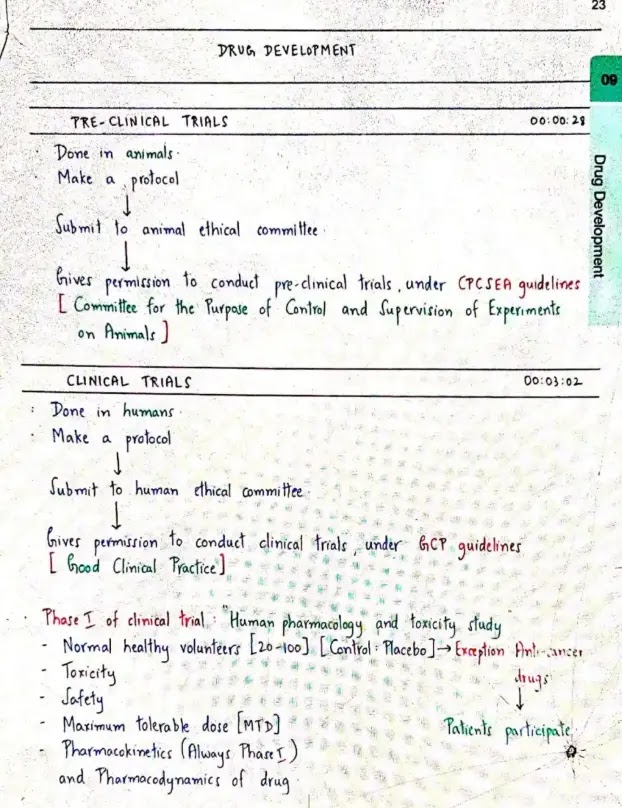 23
DRUG DEVELOPMENT
09
Drug Development
PRE-CLINICAL TRIALS 00:00:28
Done in animals.
Make a protocol
↓
Submit to animal ethical committee.
↓
Gives permission to conduct pre-clinical trials, under CPCSEA guidelines
[Committee for the Purpose of Control and Supervision of Experiments
on Animals]
CLINICAL TRIALS 00:03:02
Done in humans.
Make a protocol
↓
Submit to human ethical committee.
↓
Gives permission to conduct clinical trials, under GCP guidelines
[Good Clinical Practice]
Phase I of clinical trial: "Human pharmacology and toxicity study"
- Normal healthy volunteers [20-100] [Control: Placebo] → Exception Anti-cancer
drugs
- Toxicity
↓
- Safety
- Maximum tolerable dose [MTD] Patients participate.
- Pharmacokinetics (Always Phase I)
and Pharmacodynamics of drug.